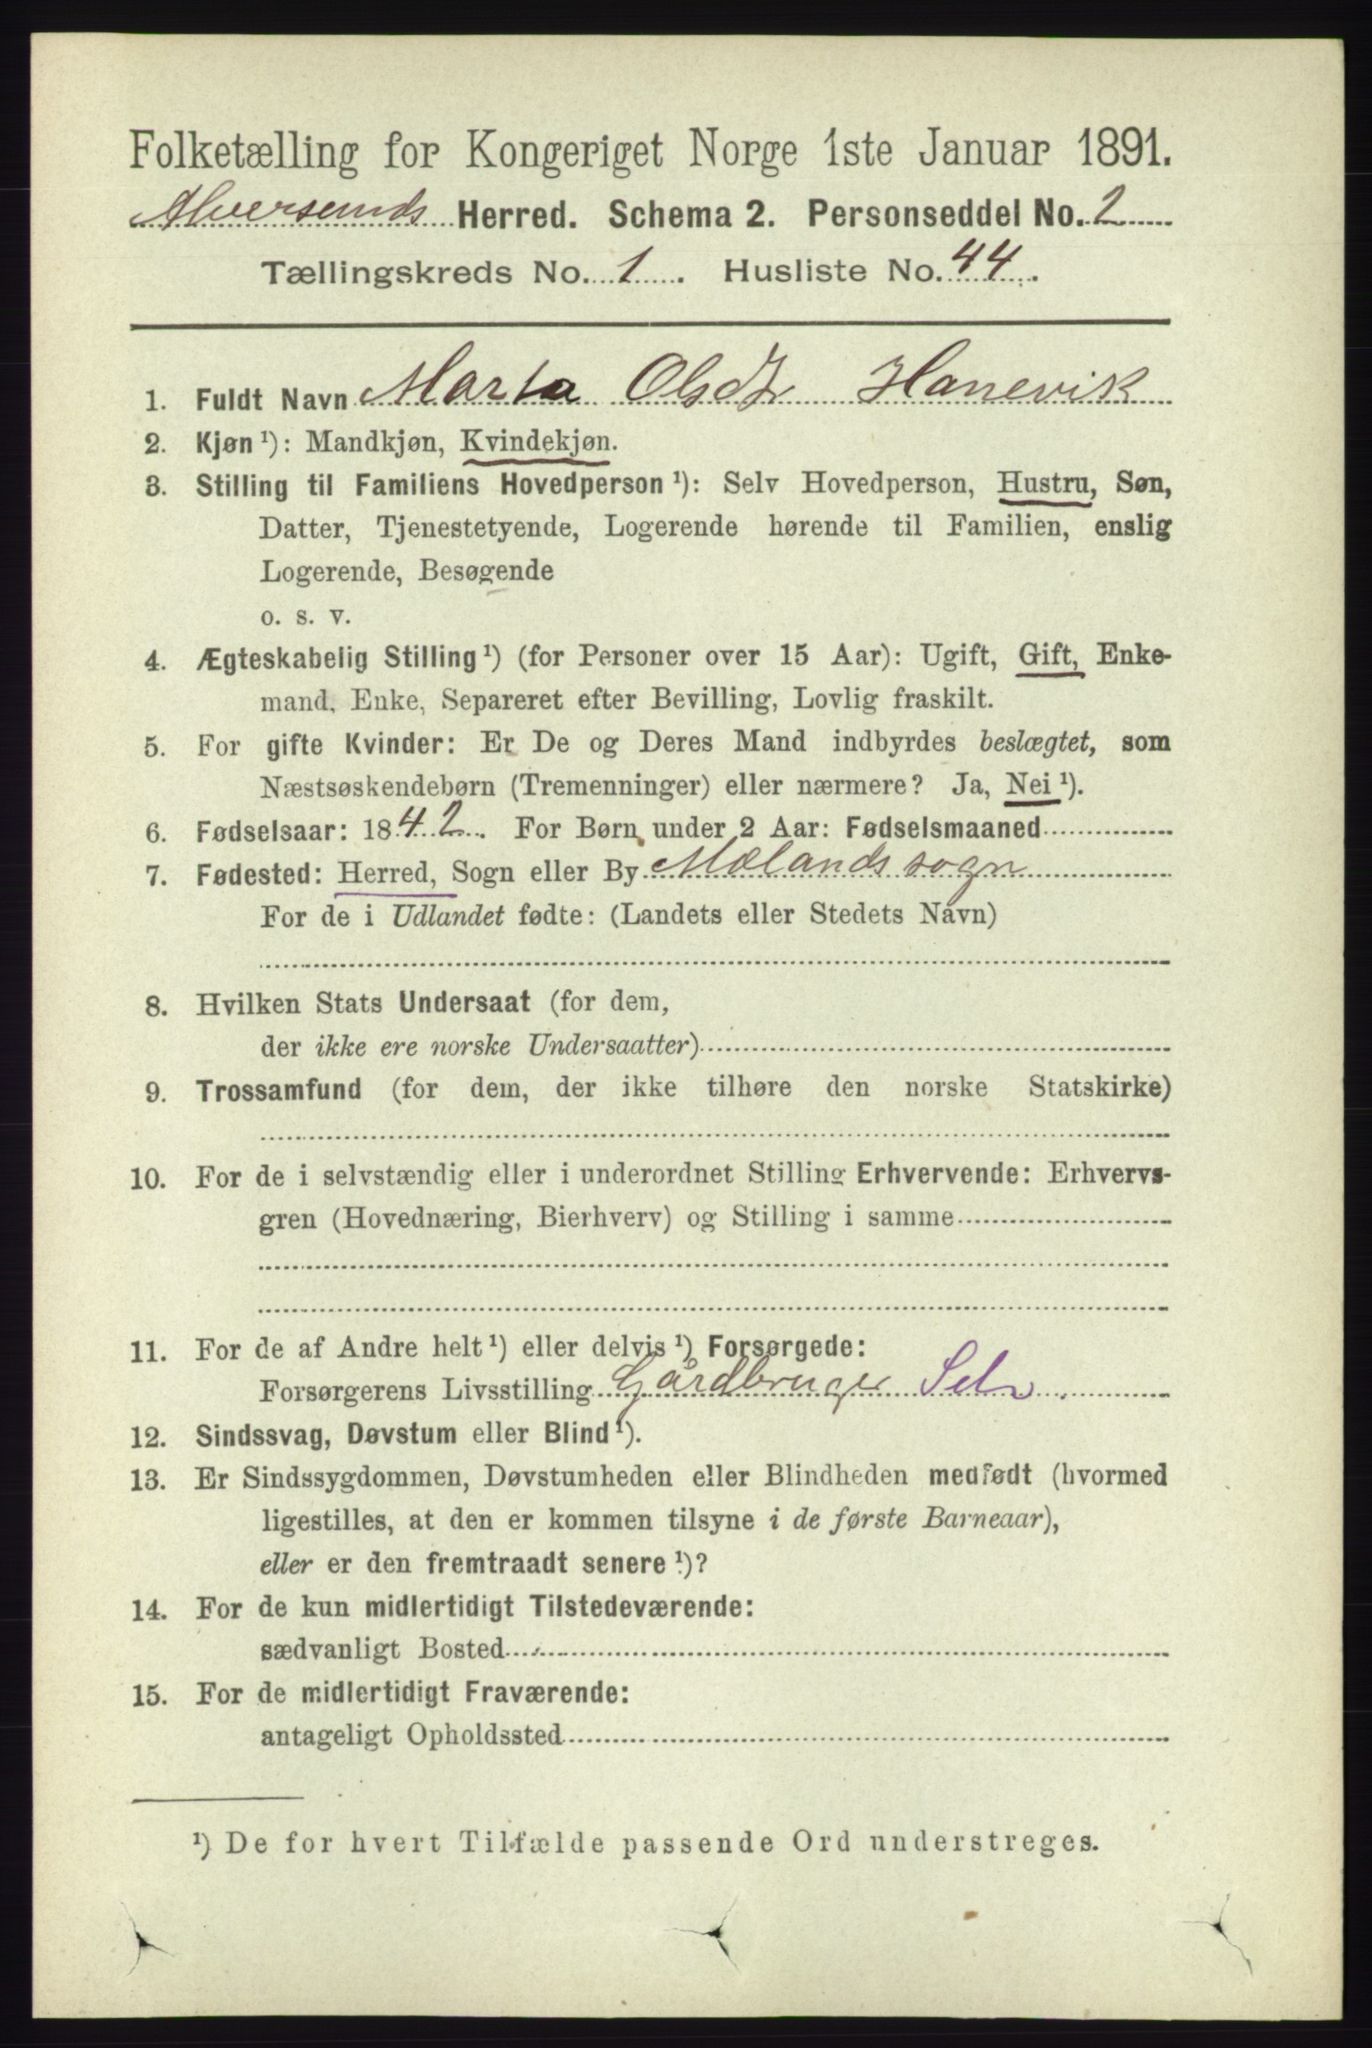 Folketælling for Kongeriget Norge 1ste Januar 1891.
Alversunds Herred. Schema 2. Personseddel No. 2
Tællingskreds No. 1. Husliste No. 44.
1. Fuldt Navn Marta Olsdt Hanevik
2. Kjøn ¹): Mandkjøn, Kvindekjøn.
3. Stilling til Familiens Hovedperson ¹): Selv Hovedperson, Hustru, Søn,
Datter, Tjenestetyende, Logerende hørende til Familien, enslig
Logerende, Besøgende
o. s. v.
4. Ægteskabelig Stilling ¹) (for Personer over 15 Aar): Ugift, Gift, Enke-
mand, Enke, Separeret efter Bevilling, Lovlig fraskilt.
5. For gifte Kvinder: Er De og Deres Mand indbyrdes beslægtet, som
Næstsøskendebørn (Tremenninger) eller nærmere? Ja, Nei ¹).
6. Fødselsaar: 1842. For Børn under 2 Aar: Fødselsmaaned
7. Fødested: Herred, Sogn eller By Mælands sogn
For de i Udlandet fødte: (Landets eller Stedets Navn)
8. Hvilken Stats Undersaat (for dem,
der ikke ere norske Undersaatter)
9. Trossamfund (for dem, der ikke tilhøre den norske Statskirke)
10. For de i selvstændig eller i underordnet Stilling Erhvervende: Erhvervs-
gren (Hovednæring, Bierhverv) og Stilling i samme
11. For de af Andre helt ¹) eller delvis ¹) Forsørgede:
Forsørgerens Livsstilling Gårdbruger Selv.
12. Sindssvag, Døvstum eller Blind ¹).
13. Er Sindssygdommen, Døvstumheden eller Blindheden medfødt (hvormed
ligestilles, at den er kommen tilsyne i de første Barneaar),
eller er den fremtraadt senere ¹)?
14. For de kun midlertidigt Tilstedeværende:
sædvanligt Bosted
15. For de midlertidigt Fraværende:
antageligt Opholdssted
¹) De for hvert Tilfælde passende Ord understreges.